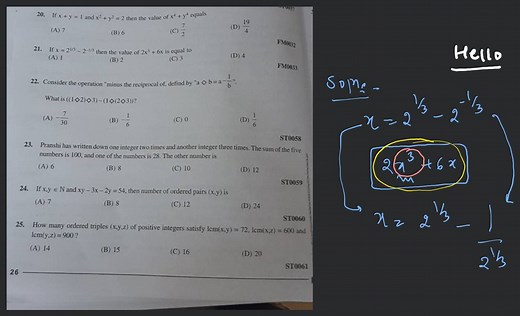 20. If x + y = 1 and x² + y² = 2 then the value of x⁴ + y⁴ equals
(A) 7 (B) 6 (C) 7/2 (D) 19/4
FM0032
21. If x = 2^1/3 – 2^–1/3 then the value of 2x³ + 6x is equal to
(A) 1 (B) 2 (C) 3 (D) 4
FM0033
22. Consider the operation "minus the reciprocal of, defind by "a ◇ b = a – 1/b".
What is ((1◇2)◇3) – (1◇(2◇3))?
(A) –7/30 (B) –1/6 (C) 0 (D) 1/6
ST0058
23. Pranshi has written down one integer two times and another integer three times. The sum of the five
numbers is 100, and one of the numbers is 28. The other number is
(A) 6 (B) 8 (C) 10 (D) 12
ST0059
24. If x,y ∈ N and xy – 3x – 2y = 54, then number of ordered pairs (x,y) is
(A) 7 (B) 8 (C) 12 (D) 24
ST0060
25. How many ordered triples (x,y,z) of positive integers satisfy lcm(x,y) = 72, lcm(x,z) = 600 and
lcm(y,z) = 900 ?
(A) 14 (B) 15 (C) 16 (D) 20
ST0061
26
Hello
x = 2^1/3 – 2^–1/3
2x³ + 6x
x = 2^1/3 – 1/2^1/3